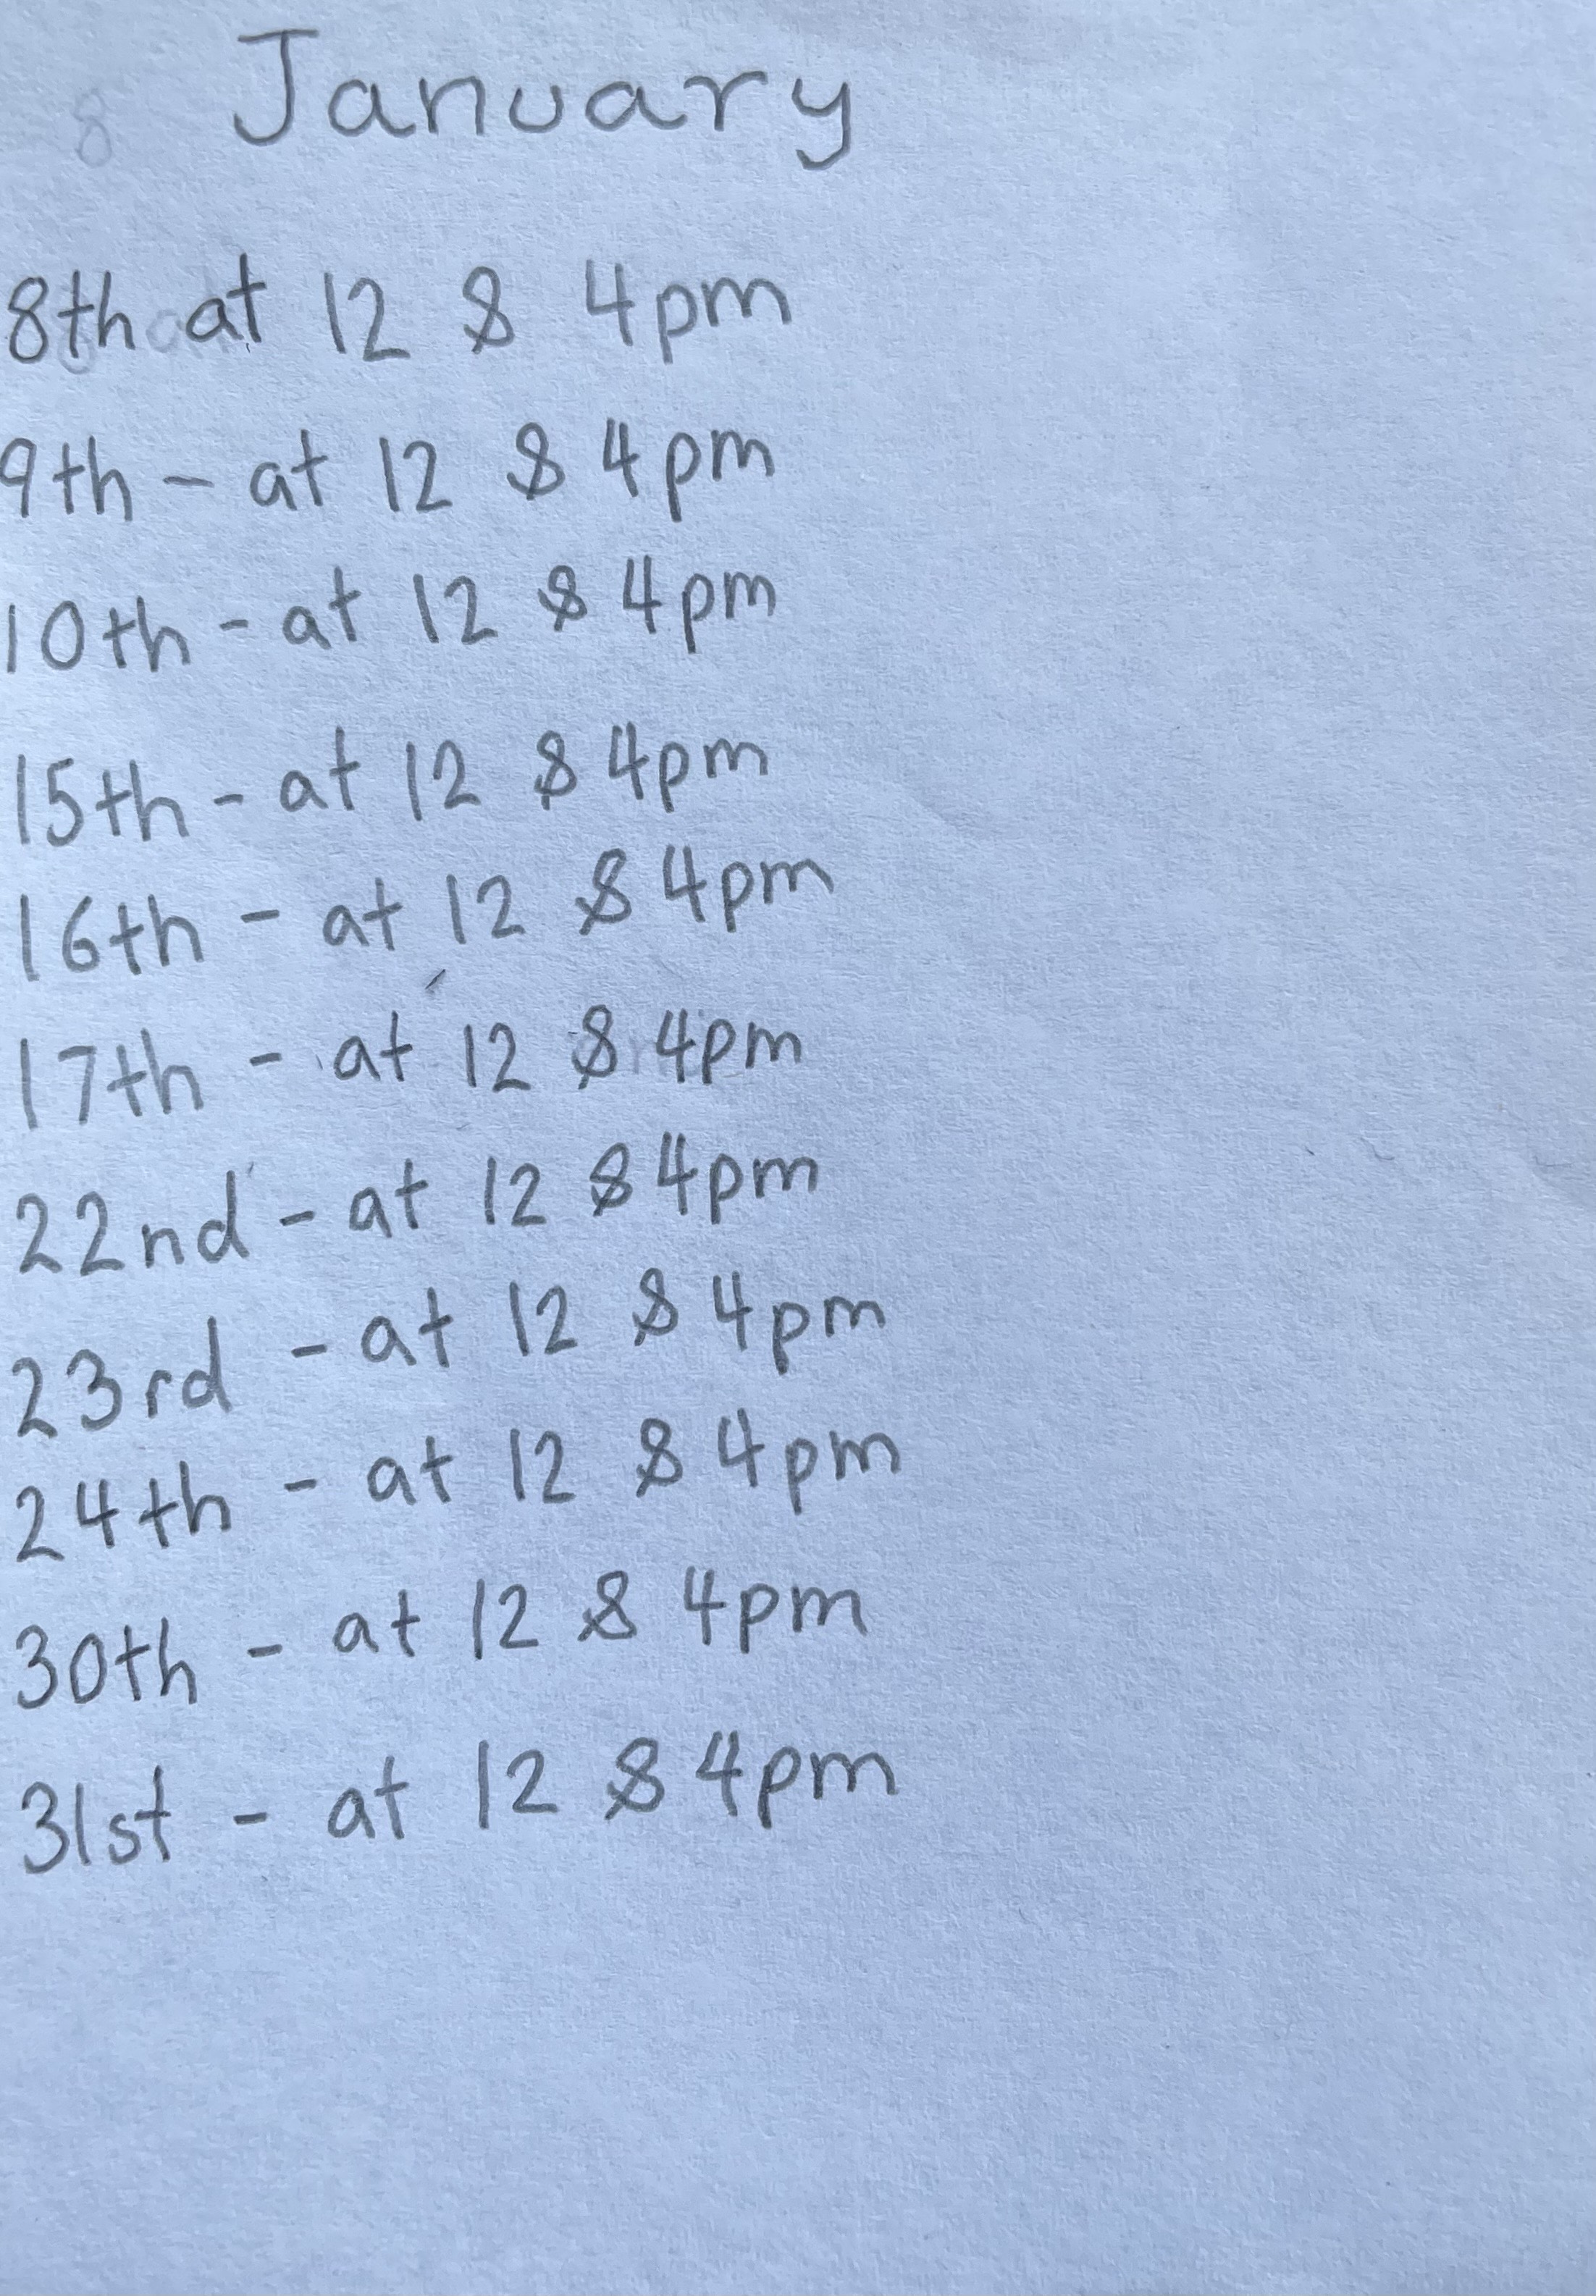 January
8th at 12 & 4pm
9th - at 12 & 4pm
10th - at 12 & 4pm
15th - at 12 & 4pm
16th - at 12 & 4pm
17th - at 12 & 4pm
22nd - at 12 & 4pm
23rd - at 12 & 4pm
24th - at 12 & 4pm
30th - at 12 & 4pm
31st - at 12 & 4pm